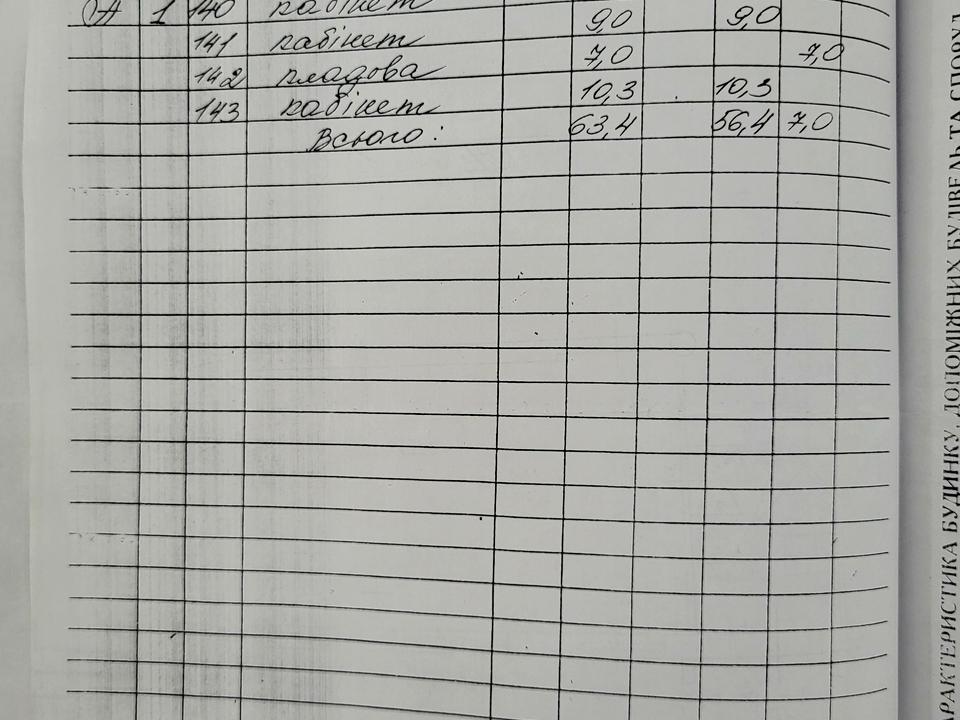 А 1 140 кабінет
141 кабінет 9,0 9,0
142 кладова 7,0 7,0
143 кабінет 10,3 10,3
Всього: 63,4 56,4 7,0
ХАРАКТЕРИСТИКА БУДИНКУ, ДОПОМІЖНИХ БУДІВЕЛЬ ТА СПОРУД